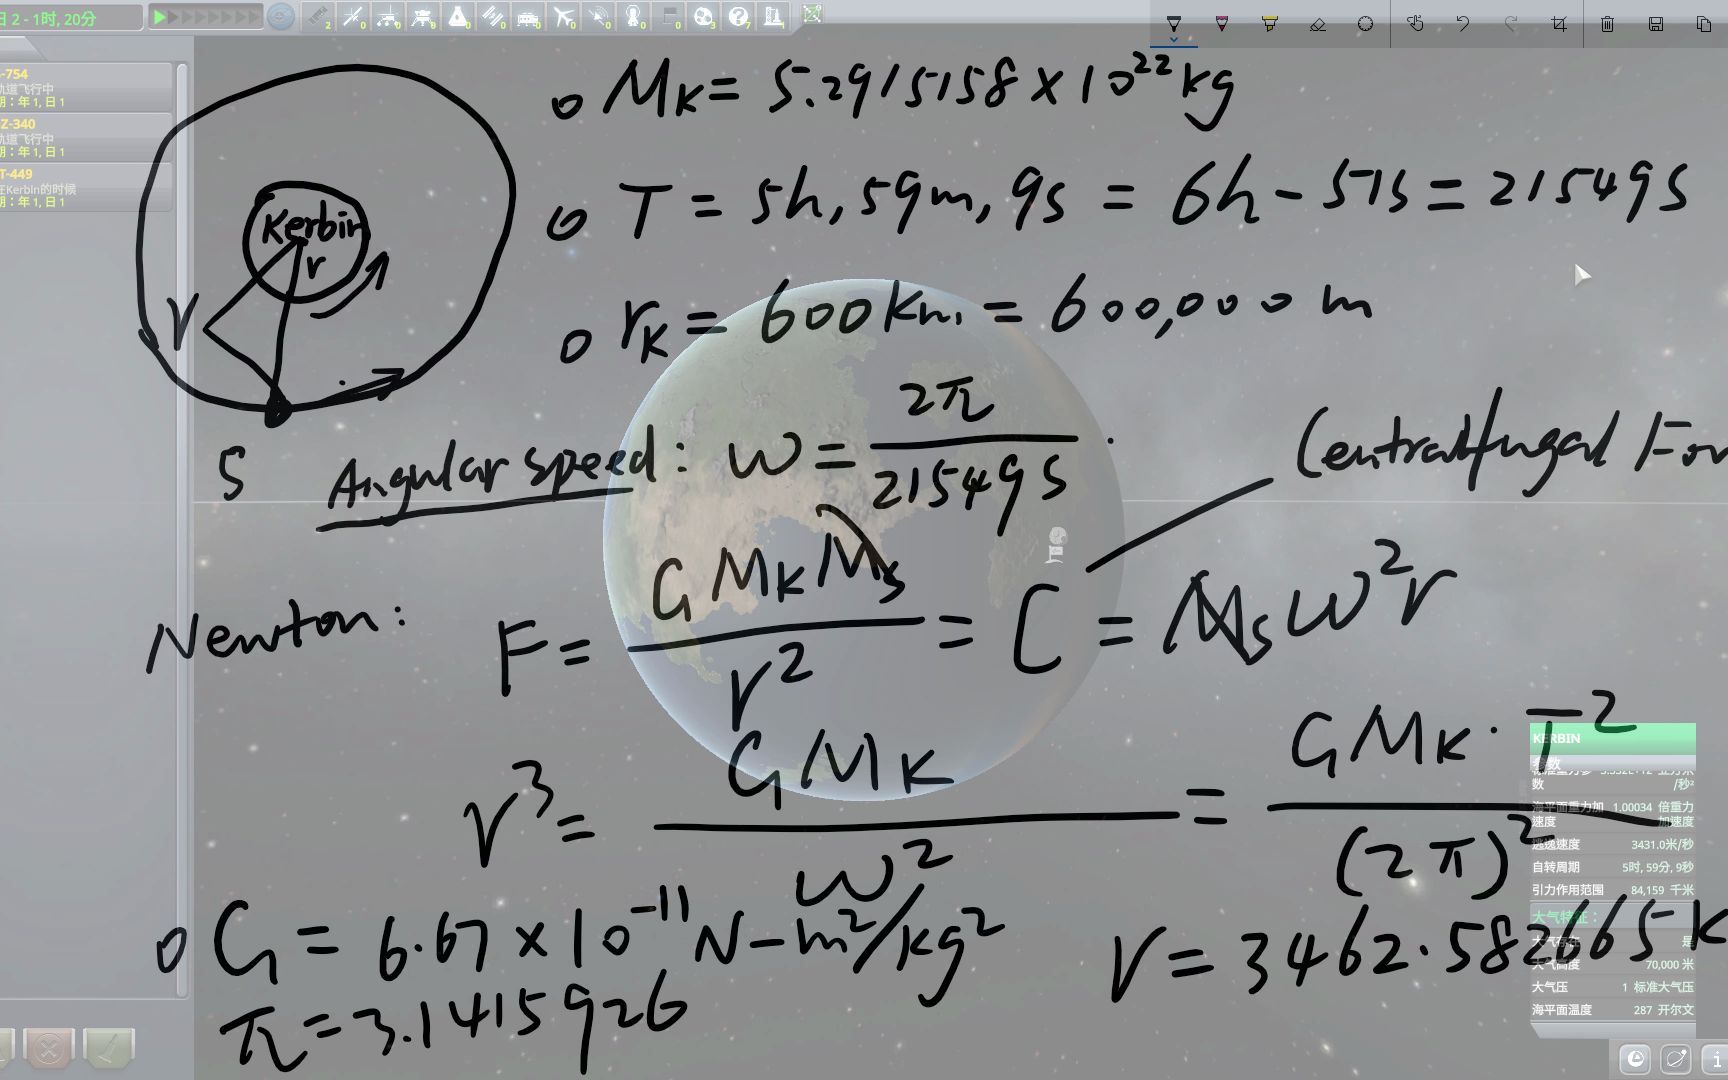 日 2 - 1时, 20分
-754
轨道飞行中
期：年 1, 日 1
Z-340
轨道飞行中
期：年 1, 日 1
T-449
在Kerbin的时候
期：年 1, 日 1
Kerbin
r
r
S
M_K = 5.2915158 × 10^22 kg
T = 5h, 59m, 9s = 6h - 51s = 21549s
r_K = 600km = 600,000 m
Angular speed: ω = 2π / 21549s
Centralfugal For
Newton: F = G M_K M_s / r^2 = C = M_s ω^2 r
r^3 = G M_K / ω^2 = G M_K · T^2 / (2π)^2
G = 6.67 × 10^-11 N-m^2/kg^2
r = 3462.582665 K
π = 3.1415926
KERBIN
参数
数 /秒²
海平面重力加速度 1.00034 倍重力加速度
逃逸速度 3431.0米/秒
自转周期 5时, 59分, 9秒
引力作用范围 84,159 千米
大气特征：
大气存在 是
大气高度 70,000 米
大气压 1 标准大气压
海平面温度 287 开尔文